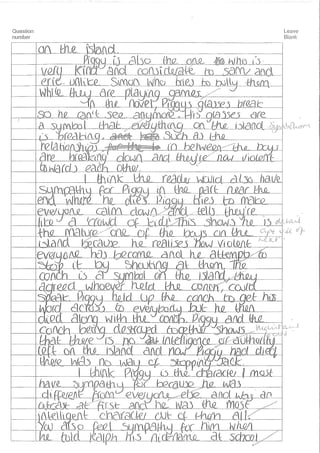 Question
number
Leave
Blank
on the island.
Piggy is also the one who is
very kind and considerate to sam and
eric unlike Simon who tries to bully them
while they are playing games.
In the novel, Piggy's glasses break
so he can't see anymore. His glasses are
a symbol that everything on the island
is breaking. Such as the
relationships in between the boys
are breaking down and they're now violent
towards each other.
I think the reader would also have
sympathy for Piggy in the part near the
end where he dies. Piggy tries to make
everyone calm down and tells they're
like a 'crowd of kids'. This shows he is
the mature one of the boys on the
island because he realises how violent
everyone has become and he attempts to
stop it by shouting at them. The
conch is a symbol on the island, they
agreed whoever held the conch, could
speak. Piggy held up the conch to get his
word across to everybody but he then
died along with the conch. Piggy and the
conch being destroyed together shows
that there is no intelligence or authority
left on the island and now Piggy had died
there was no way of stopping Jack.
I think Piggy is the character I most
have sympathy for because he was
different from everyone else and was an
outcast at first and he was the most
intelligent character out of them all.
You also feel sympathy for him when
he told Ralph his nickname at school